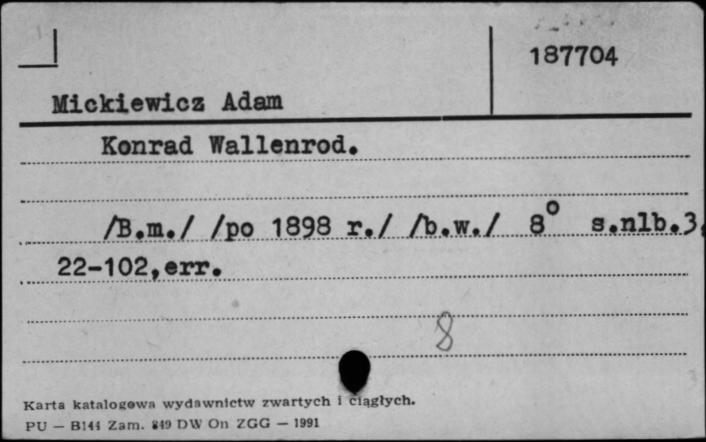 187704
Mickiewicz Adam
Konrad Wallenrod.
/B.m./ /po 1898 r./ /b.w./ 8° s.nlb.3,
22-102,err.
8
Karta katalogowa wydawnictw zwartych i ciągłych.
PU — B144 Zam. 849 DW On ZGG — 1991